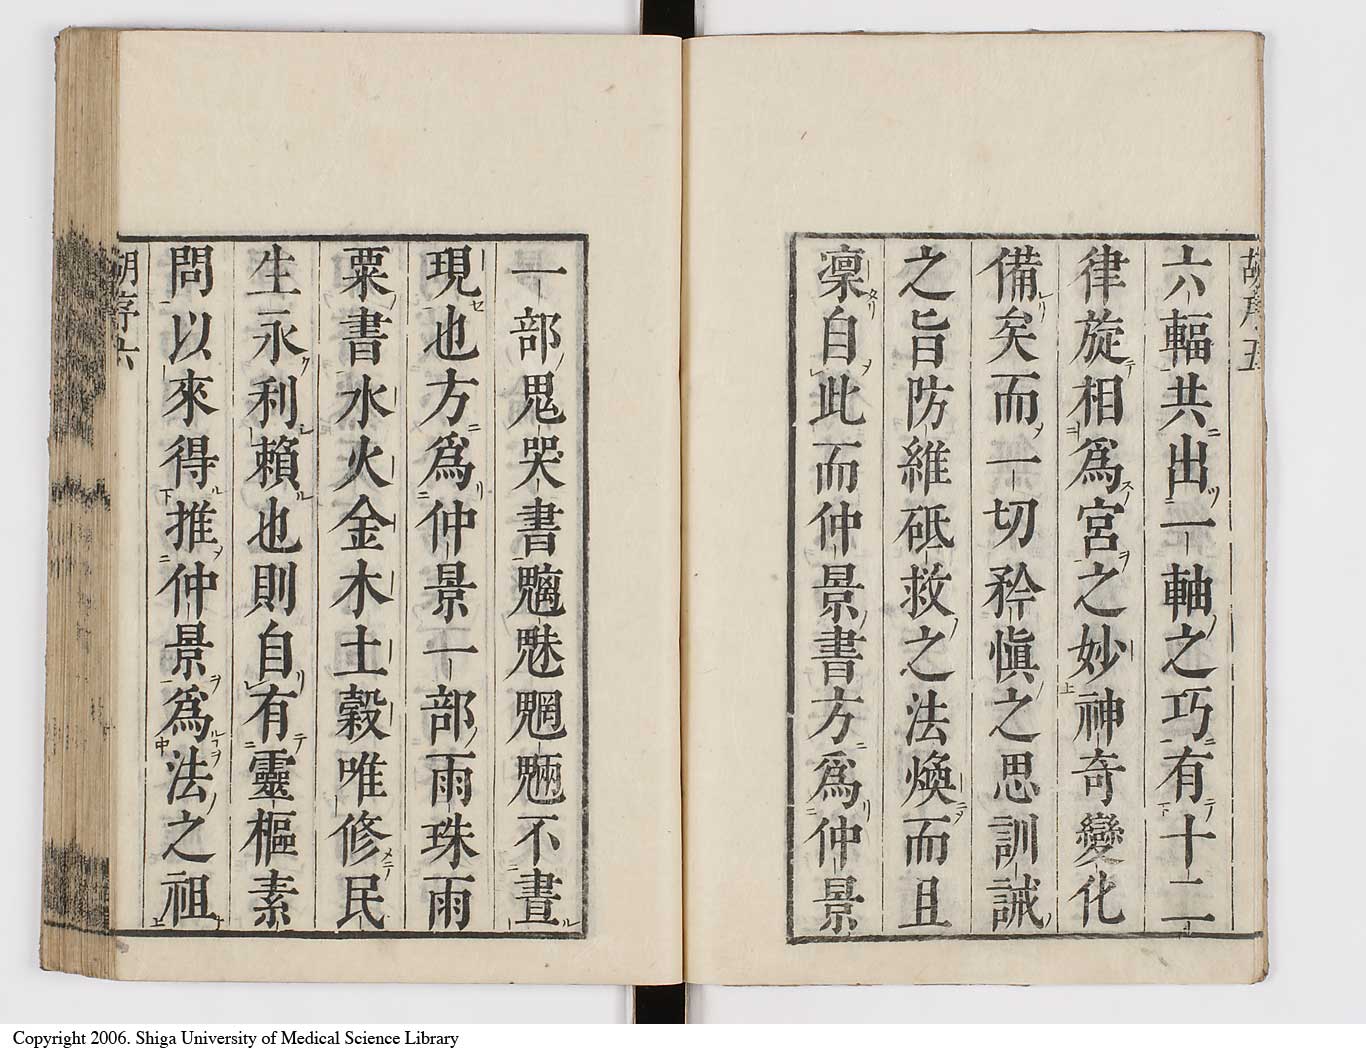 胡序五
六輻共出一軸之巧有十二
律旋相爲宮之妙神奇變化
備矣而一切矜愼之思訓誡
之旨防維砥救之法煥而且
凜自此而仲景書方爲仲景
一部鬼哭書魑魅魍魎不晝
現也方爲仲景一部雨珠雨
粟書水火金木土穀唯修民
生永利賴也則自有靈樞素
問以來得推仲景爲法之祖
胡序六
Copyright 2006. Shiga University of Medical Science Library